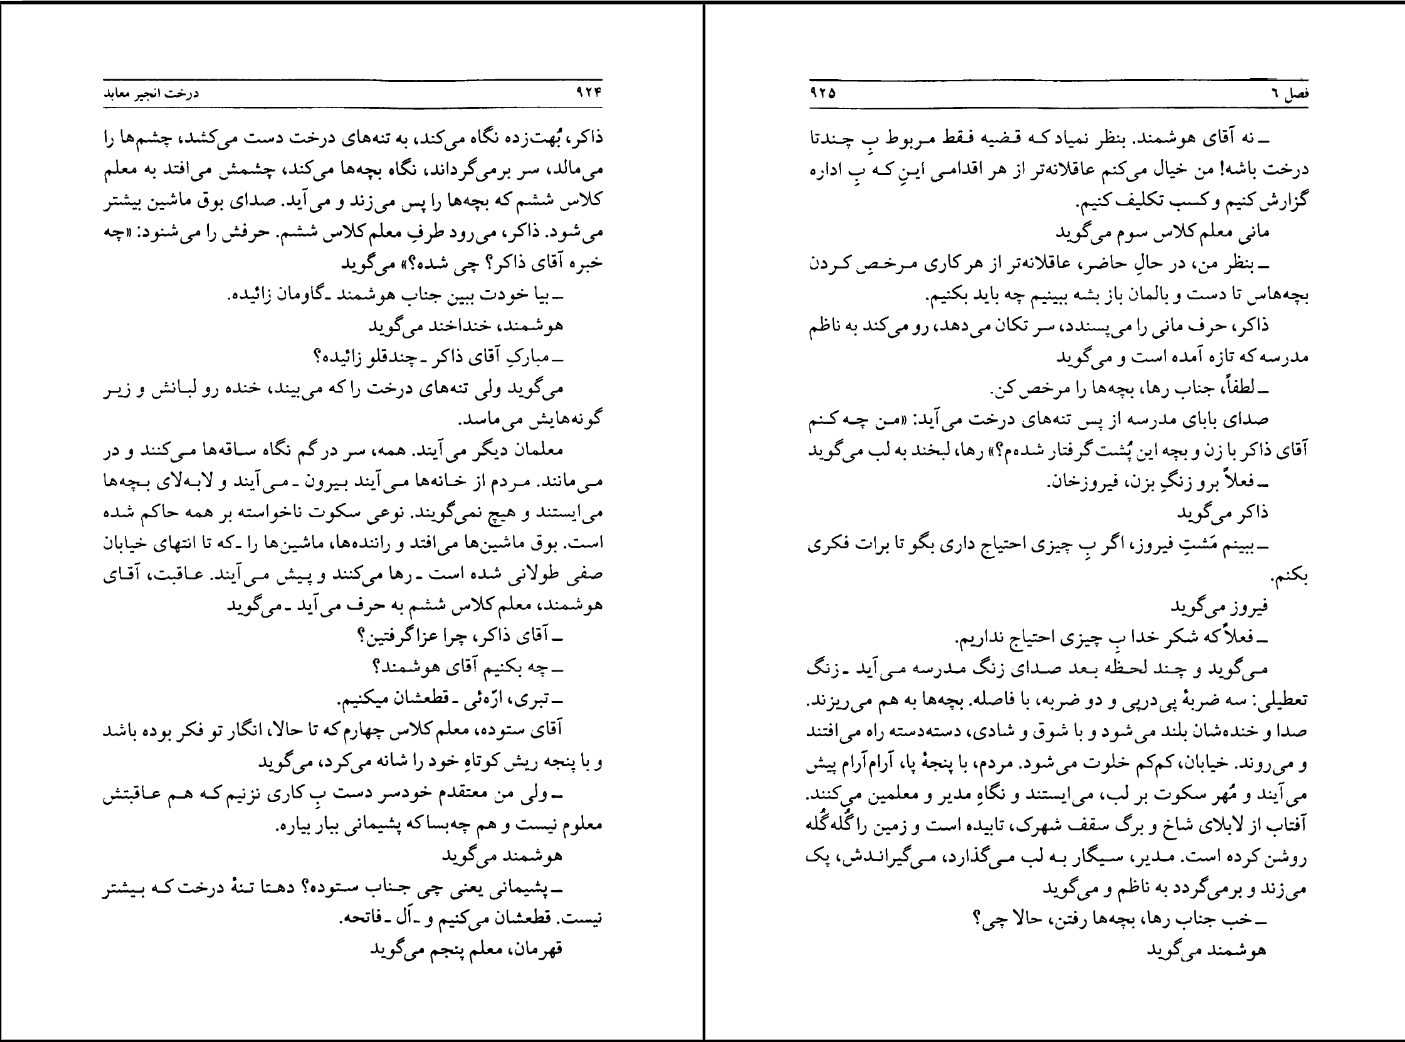 ۹۲۴ درخت انجیر معابد
ذاکر، بُهت‌زده نگاه می‌کند، به تنه‌های درخت دست می‌کشد، چشم‌ها را
می‌مالد، سر برمی‌گرداند، نگاه بچه‌ها می‌کند، چشمش می‌افتد به معلم
کلاس ششم که بچه‌ها را پس می‌زند و می‌آید. صدای بوق ماشین بیشتر
می‌شود. ذاکر، می‌رود طرفِ معلم کلاس ششم. حرفش را می‌شنود: «چه
خبره آقای ذاکر؟ چی شده؟» می‌گوید
ـ بیا خودت ببین جناب هوشمند ـ گاومان زائیده.
هوشمند، خنداخند می‌گوید
ـ مبارکِ آقای ذاکر ـ چندقلو زائیده؟
می‌گوید ولی تنه‌های درخت را که می‌بیند، خنده رو لبانش و زیر
گونه‌هایش می‌ماسد.
معلمان دیگر می‌آیند. همه، سر در گم نگاه ساقه‌ها می‌کنند و در
می‌مانند. مردم از خانه‌ها می‌آیند بیرون ـ می‌آیند و لابه‌لای بچه‌ها
می‌ایستند و هیچ نمی‌گویند. نوعی سکوت ناخواسته بر همه حاکم شده
است. بوق ماشین‌ها می‌افتد و راننده‌ها، ماشین‌ها را ـ که تا انتهای خیابان
صفی طولانی شده است ـ رها می‌کنند و پیش می‌آیند. عاقبت، آقای
هوشمند، معلم کلاس ششم به حرف می‌آید ـ می‌گوید
ـ آقای ذاکر، چرا عزا گرفتین؟
ـ چه بکنیم آقای هوشمند؟
ـ تبری، ارّه‌ئی ـ قطعشان میکنیم.
آقای ستوده، معلم کلاس چهارم که تا حالا، انگار تو فکر بوده باشد
و با پنجه ریش کوتاهِ خود را شانه می‌کرد، می‌گوید
ـ ولی من معتقدم خودسر دست بِ کاری نزنیم که هم عاقبتش
معلوم نیست و هم چه‌بسا که پشیمانی ببار بیاره.
هوشمند می‌گوید
ـ پشیمانی یعنی چی جناب ستوده؟ ده‌تا تنهٔ درخت که بیشتر
نیست. قطعشان می‌کنیم و ـ آل ـ فاتحه.
قهرمان، معلم پنجم می‌گوید
فصل ٦ ۹۲۵
ـ نه آقای هوشمند. بنظر نمیاد که قضیه فقط مربوط بِ چندتا
درخت باشه! من خیال می‌کنم عاقلانه‌تر از هر اقدامی اینِ که بِ اداره
گزارش کنیم و کسب تکلیف کنیم.
مانی معلم کلاس سوم می‌گوید
ـ بنظر من، در حالِ حاضر، عاقلانه‌تر از هر کاری مرخص کردن
بچه‌هاس تا دست و بالمان باز بشه ببینیم چه باید بکنیم.
ذاکر، حرف مانی را می‌پسندد، سر تکان می‌دهد، رو می‌کند به ناظم
مدرسه که تازه آمده است و می‌گوید
ـ لطفاً، جناب رها، بچه‌ها را مرخص کن.
صدای بابای مدرسه از پس تنه‌های درخت می‌آید: «من چه کنم
آقای ذاکر با زن و بچه این پُشت گرفتار شده‌م؟» رها، لبخند به لب می‌گوید
ـ فعلاً برو زنگِ بزن، فیروزخان.
ذاکر می‌گوید
ـ ببینم مَشتِ فیروز، اگر بِ چیزی احتیاج داری بگو تا برات فکری
بکنم.
فیروز می‌گوید
ـ فعلاً که شکر خدا بِ چیزی احتیاج نداریم.
می‌گوید و چند لحظه بعد صدای زنگ مدرسه می‌آید ـ زنگ
تعطیلی: سه ضربهٔ پی‌درپی و دو ضربه، با فاصله. بچه‌ها به هم می‌ریزند.
صدا و خنده‌شان بلند می‌شود و با شوق و شادی، دسته‌دسته راه می‌افتند
و می‌روند. خیابان، کم‌کم خلوت می‌شود. مردم، با پنجهٔ پا، آرام‌آرام پیش
می‌آیند و مُهر سکوت بر لب، می‌ایستند و نگاهِ مدیر و معلمین می‌کنند.
آفتاب از لابلای شاخ و برگ سقف شهرک، تابیده است و زمین را گُله‌گُله
روشن کرده است. مدیر، سیگار به لب می‌گذارد، می‌گیراندش، پک
می‌زند و برمی‌گردد به ناظم و می‌گوید
ـ خب جناب رها، بچه‌ها رفتن، حالا چی؟
هوشمند می‌گوید